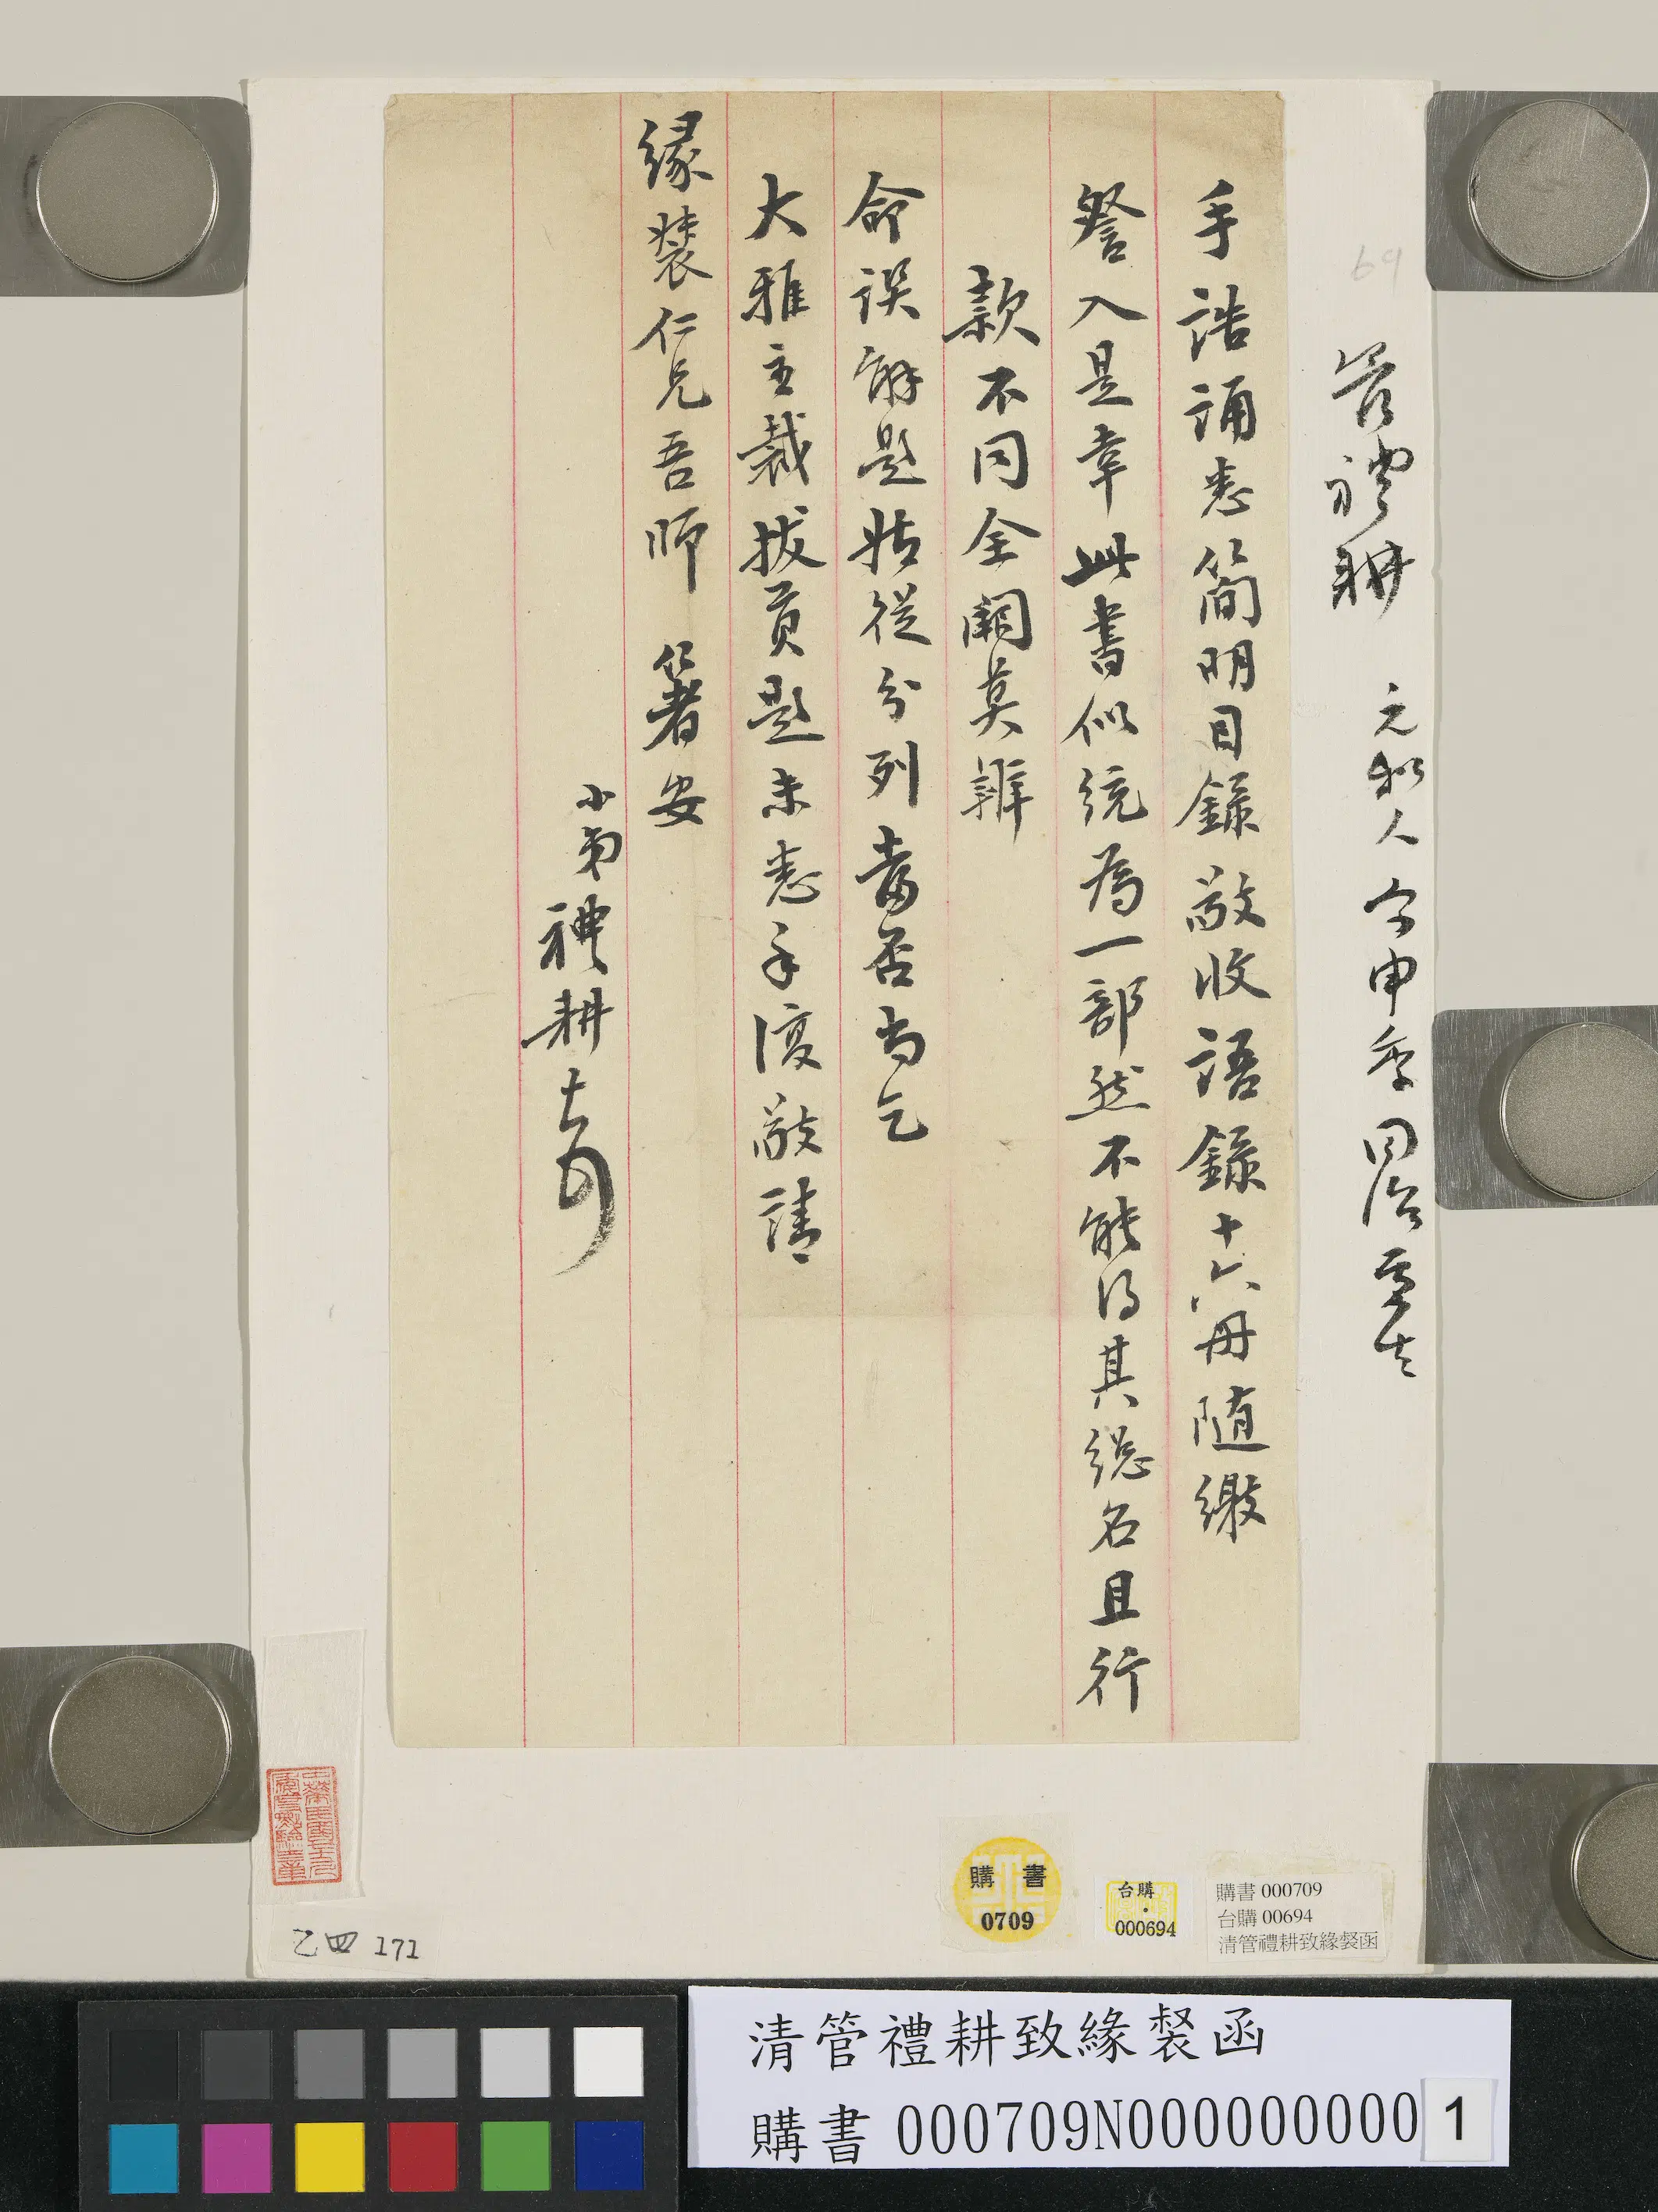 69
管禮耕 元和人 字申季 同治
手誥誦悉簡明目錄敬收語錄十六冊隨繳
詧入是幸此書似統為一部然不能得其總名且行
款不同全闕莫辨
命誤解題姑從分列當否尚乞
大雅主裁拔貢題未悉手復敬請
緣裻仁兄吾師 箸安
小弟禮耕
購書
0709
台購
000694
購書 000709
台購 00694
清管禮耕致緣裻函
乙四 171
清管禮耕致緣裻函
購書 000709N000000000 1